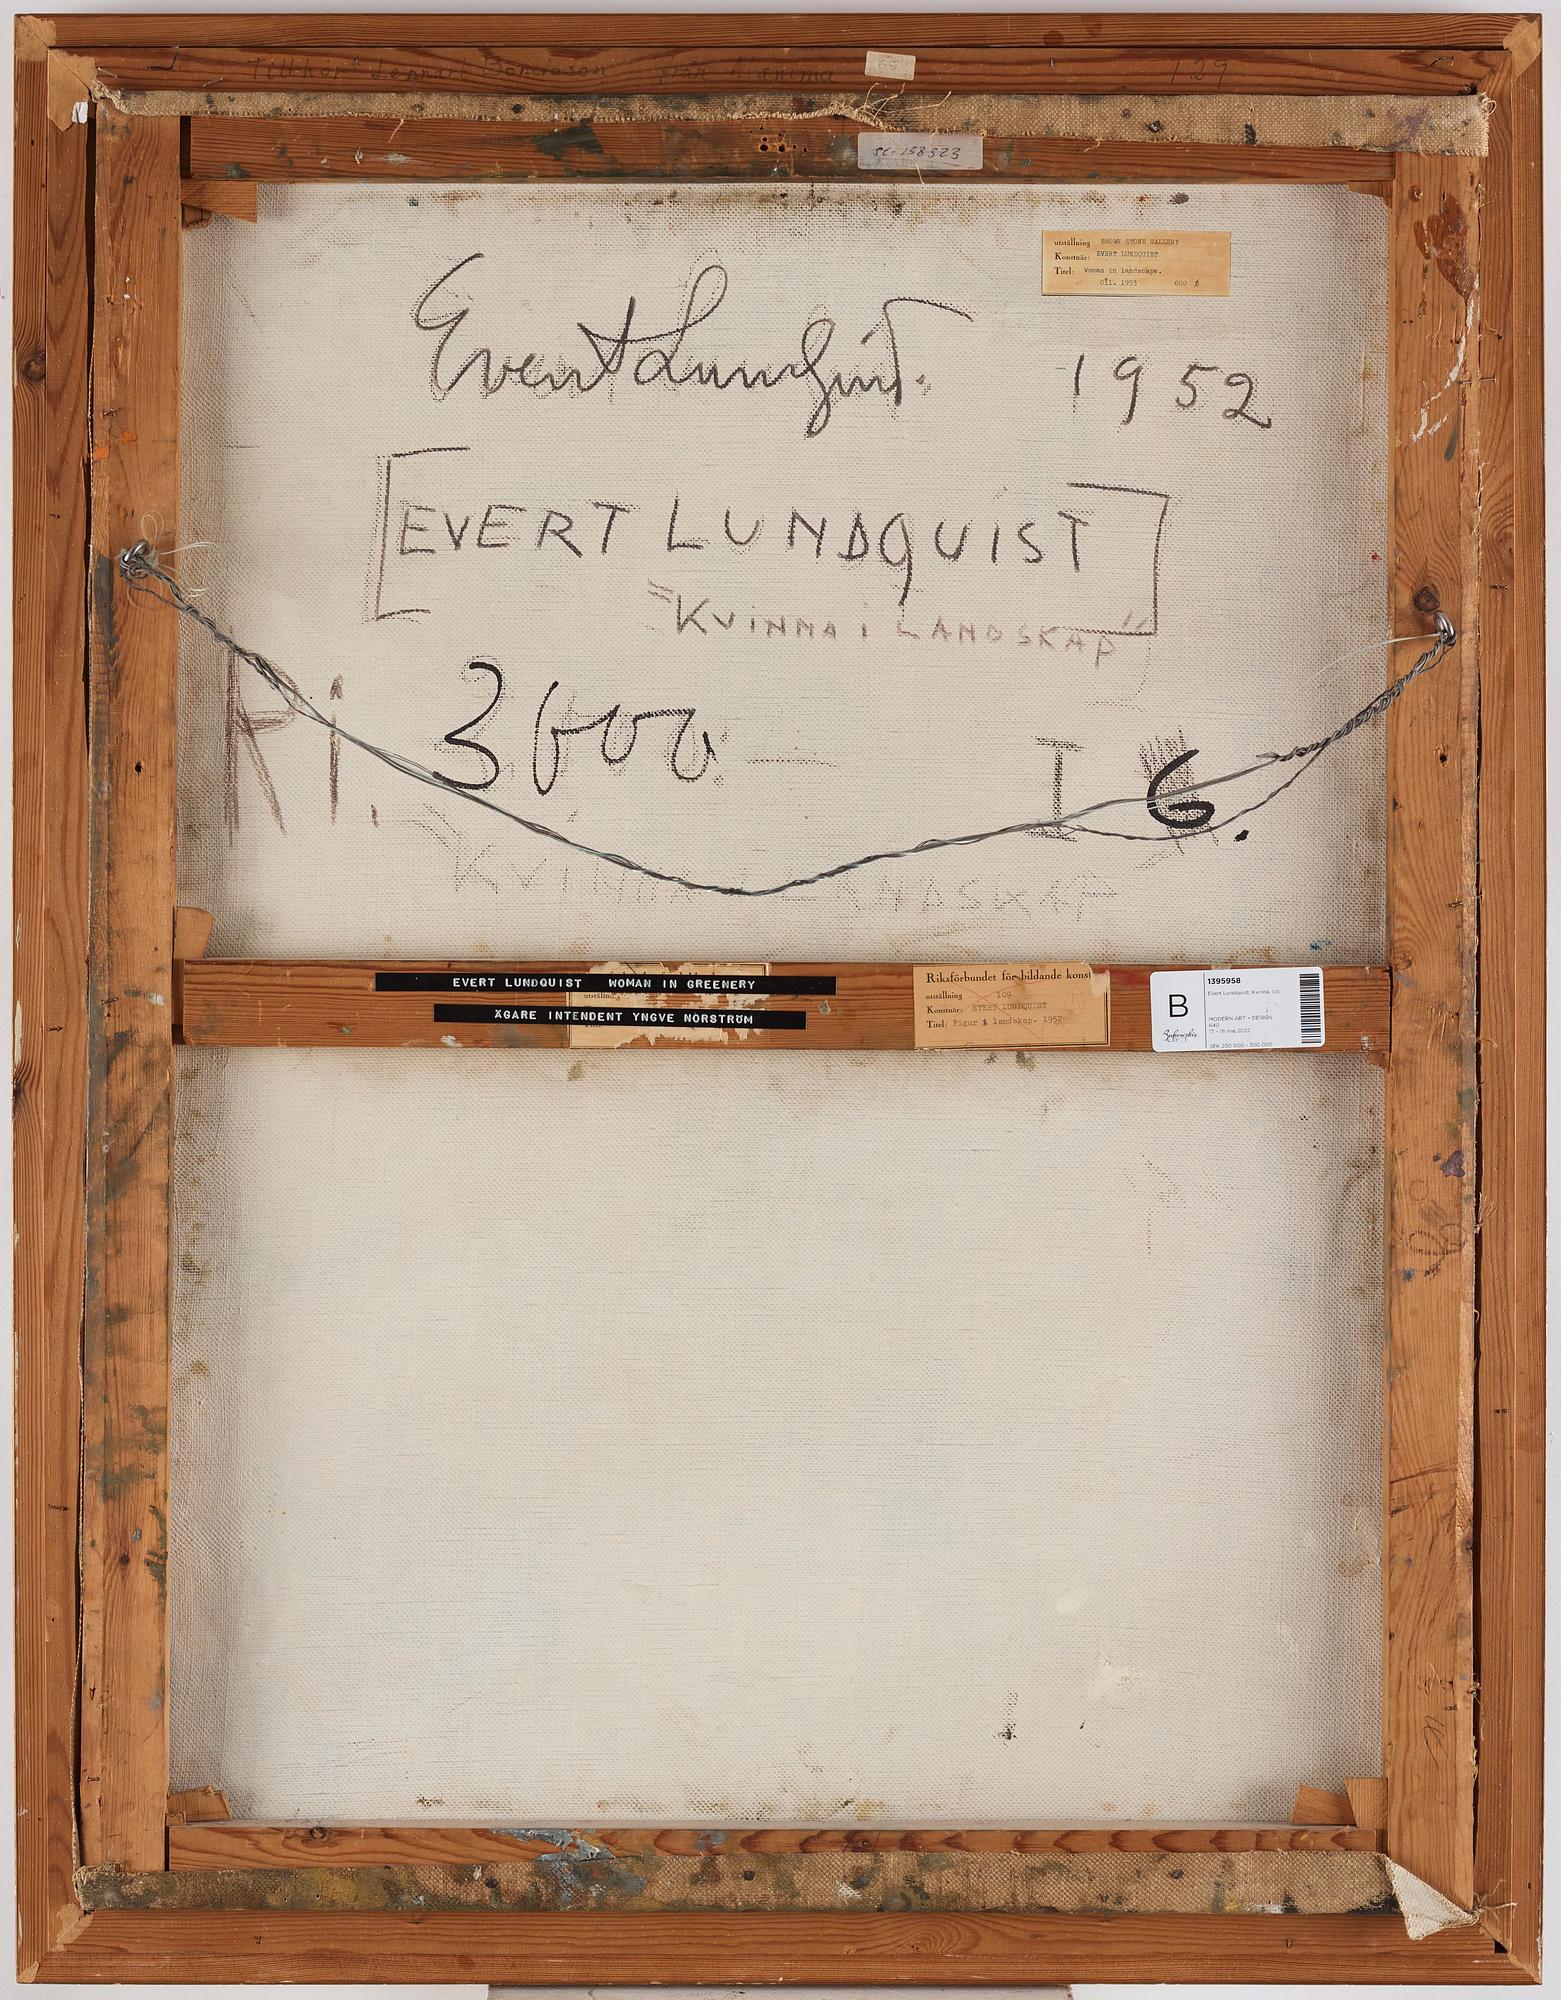 Tillhör Lennart Bondeson från Mamma
129
SE-138323
utställning BROWN STONE GALLERY
Konstnär: EVERT LUNDQUIST
Titel: Woman in landscape.
Oil. 1953 600 $
Evert Lundquist. 1952
EVERT LUNDQUIST
"KVINNA I LANDSKAP"
Ri. 3600. I 6.
"KVINNA I LANDSKAP
EVERT LUNDQUIST WOMAN IN GREENERY
ÄGARE INTENDENT YNGVE NORSTRÖM
Riksförbundet för bildande konst
utställning 109
Konstnär: EVERT LUNDQUIST
Titel: Figur i landskap. 1952
B
Bukowskis
1395958
Evert Lundquist, Kvinna
MODERN ART + DESIGN
640
17 - 18 maj 2022
SEK 250 000 - 300 000